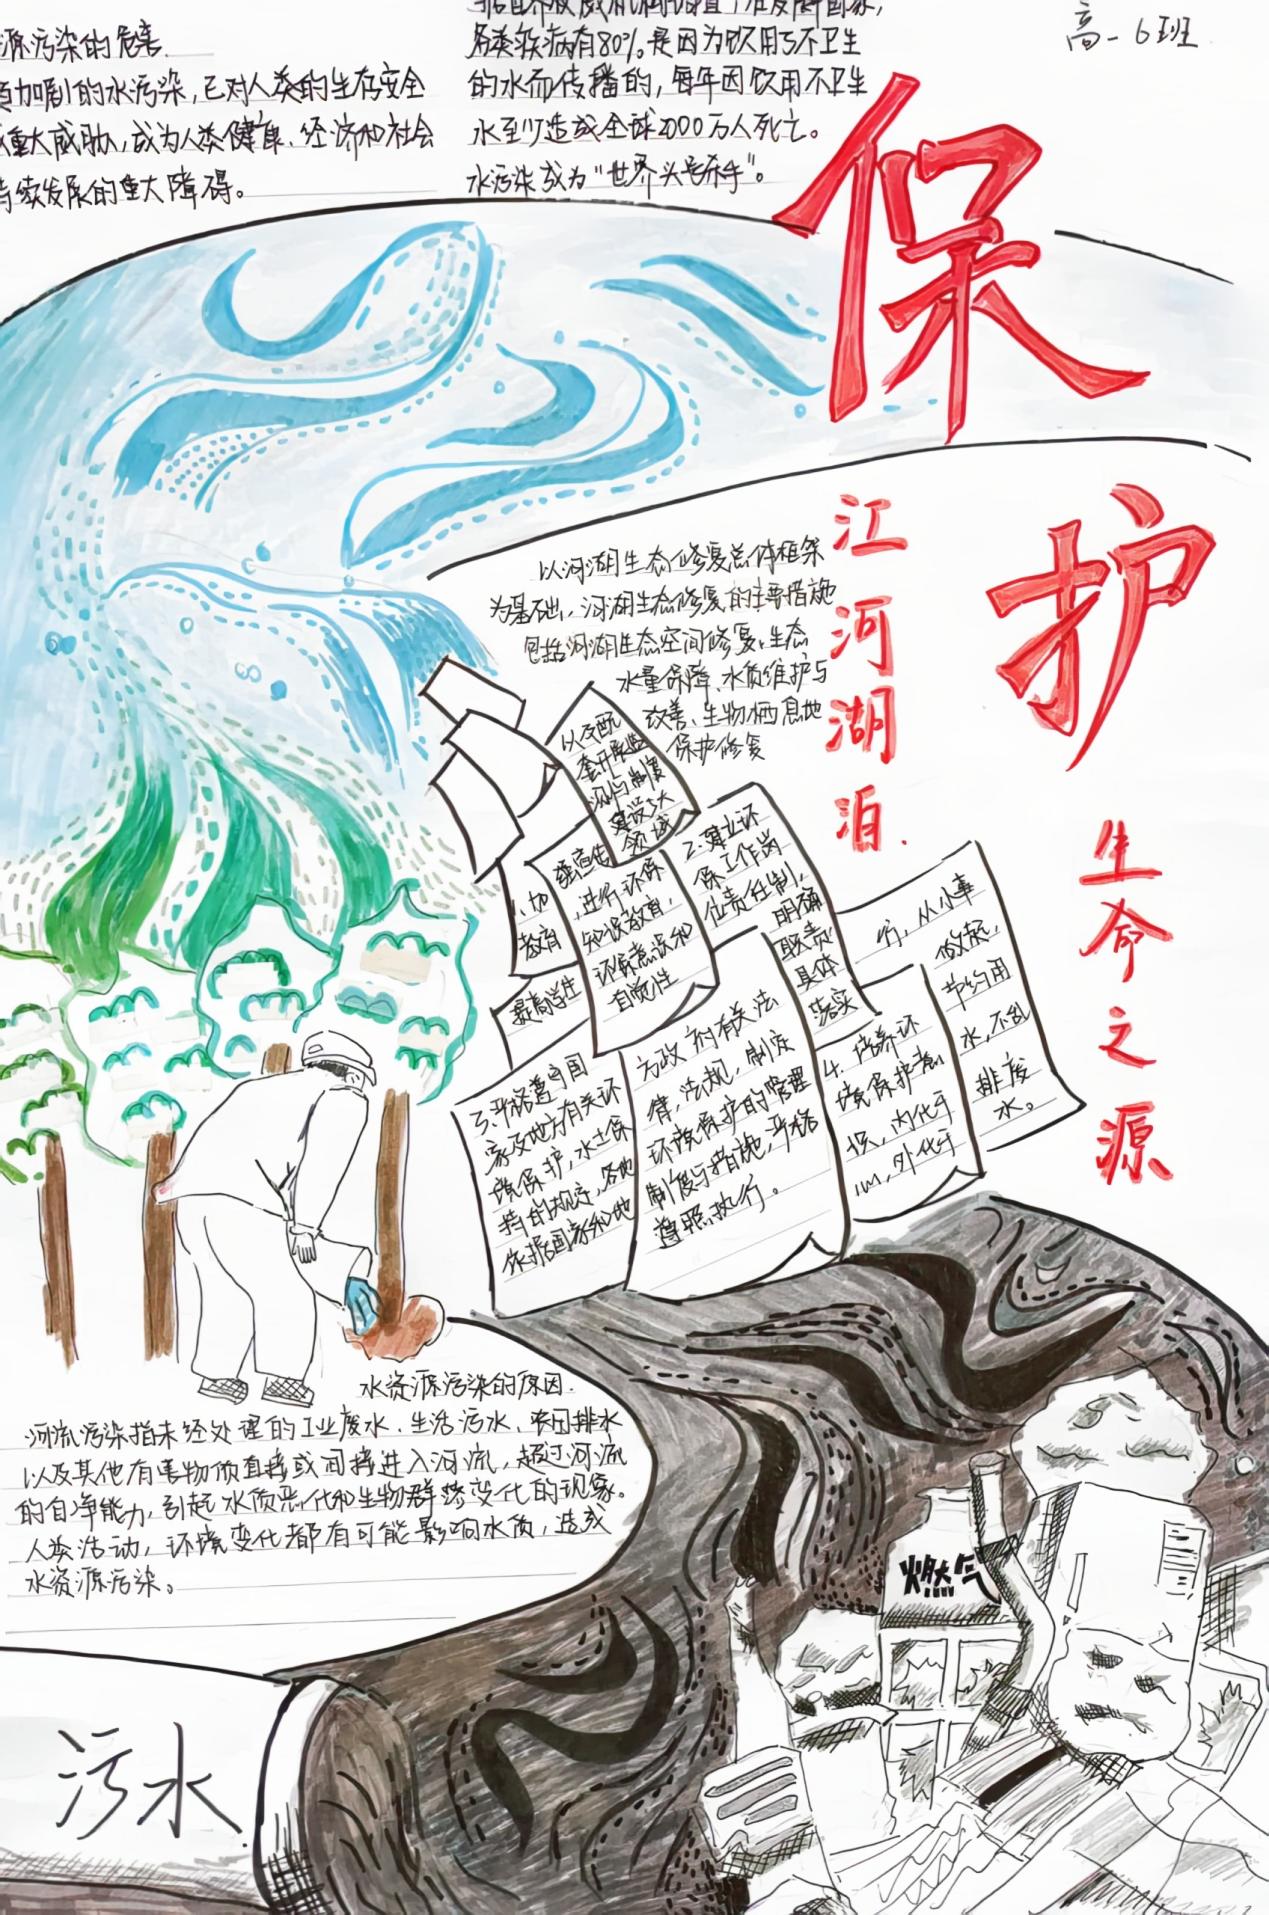 源污染的危害
加剧的水污染,已对人类的生存安全
重大威胁,成为人类健康、经济和社会
持续发展的重大障碍。
各类疾病有80%是因为饮用了不卫生
的水而传播的,每年因饮用不卫生
水至少造成全球2000万人死亡。
水污染成为“世界头号杀手”。
高一6班
保
护
江河湖泊.
生命之源
以河湖生态修复总体框架
为基础,河湖生态修复的主要措施
包括河湖生态空间修复、生态
水量保障、水质维护与
改善、生物栖息地
保护修复
以及配
套开展监
测与制度
建设5大
领域
1.切
教育
提高学生
强宣传
,进行环保
知识教育,
环保意识和
自觉性
2.建立环
保工作岗
位责任制,
明确
职责
具体
落实
3.严格遵守国
家及地方有关环
境保护,水土保
持的规定,各地
依据国家和地
方政府有关法
律,法规,制定
环境保护的管理
制度与措施,严格
遵照执行。
4.培养环
境保护意
识,内化于
心,外化于
行,从小事
做起,
节约用
水,不乱
排废
水。
水资源污染的原因.
河流污染指未经处理的工业废水、生活污水、农田排水
以及其他有害物质直接或间接进入河流,超过河流
的自净能力,引起水质恶化和生物群落变化的现象。
人类活动,环境变化都有可能影响水质,造成
水资源污染。
燃气
污水